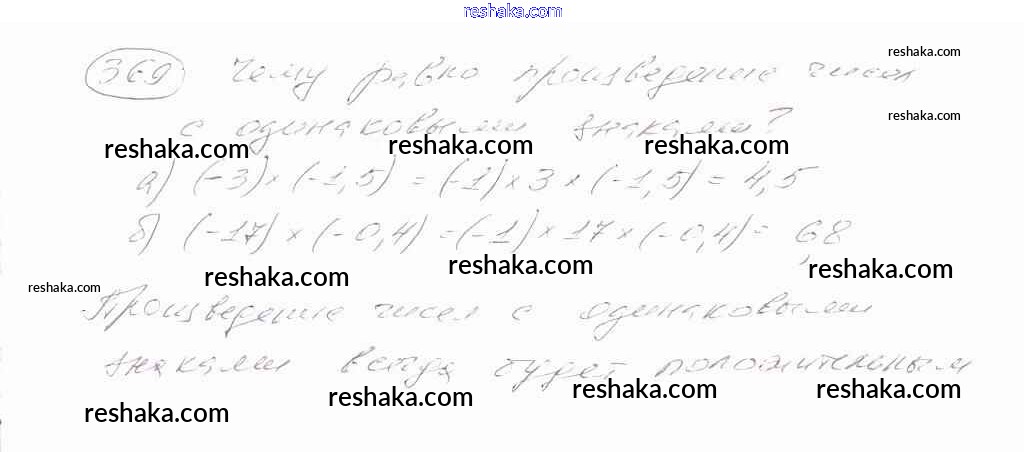 reshaka.com
369 Чему равно произведение чисел
reshaka.com
с одинаковыми знаками?
reshaka.com
reshaka.com reshaka.com reshaka.com
а) (-3) × (-1,5) = (-1) × 3 × (-1,5) = 4,5
б) (-17) × (-0,4) = (-1) × 17 × (-0,4) = 6,8
reshaka.com reshaka.com reshaka.com
reshaka.com
Произведение чисел с одинаковыми
знаками всегда будет положительным
reshaka.com reshaka.com reshaka.com reshaka.com